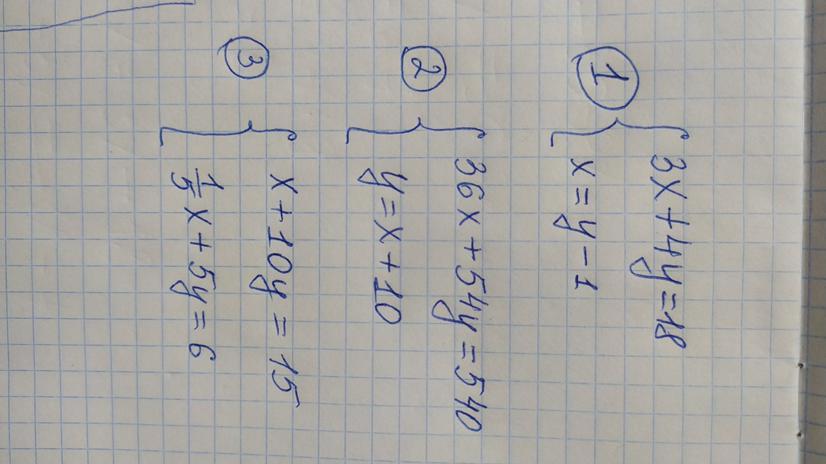 1
3x+4y=18
x=y-1
2
36x+54y=540
y=x+10
3
x+10y=15
1/5x+5y=6